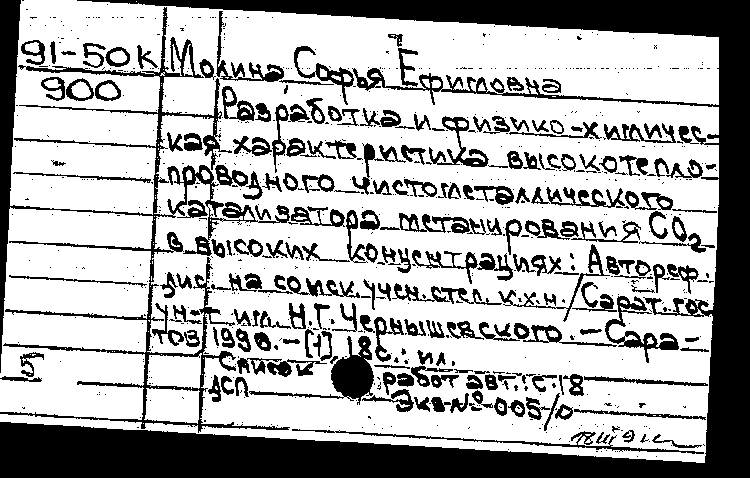 91-50к Молина, Софья Ефимовна
900
Разработка и физико-химичес-
кая характеристика высокотепло-
проводного чистометаллического
катализатора метанирования CO2
в высоких концентрациях: Автореф.
дис. на соиск. учен. степ. к.х.н. / Сарат. гос
ун-т им. Н.Г. Чернышевского. - Сара-
тов, 1990. - [1], 18с.: ил.
5 Список работ авт.: с. 18
ДСП Экз № 005/0